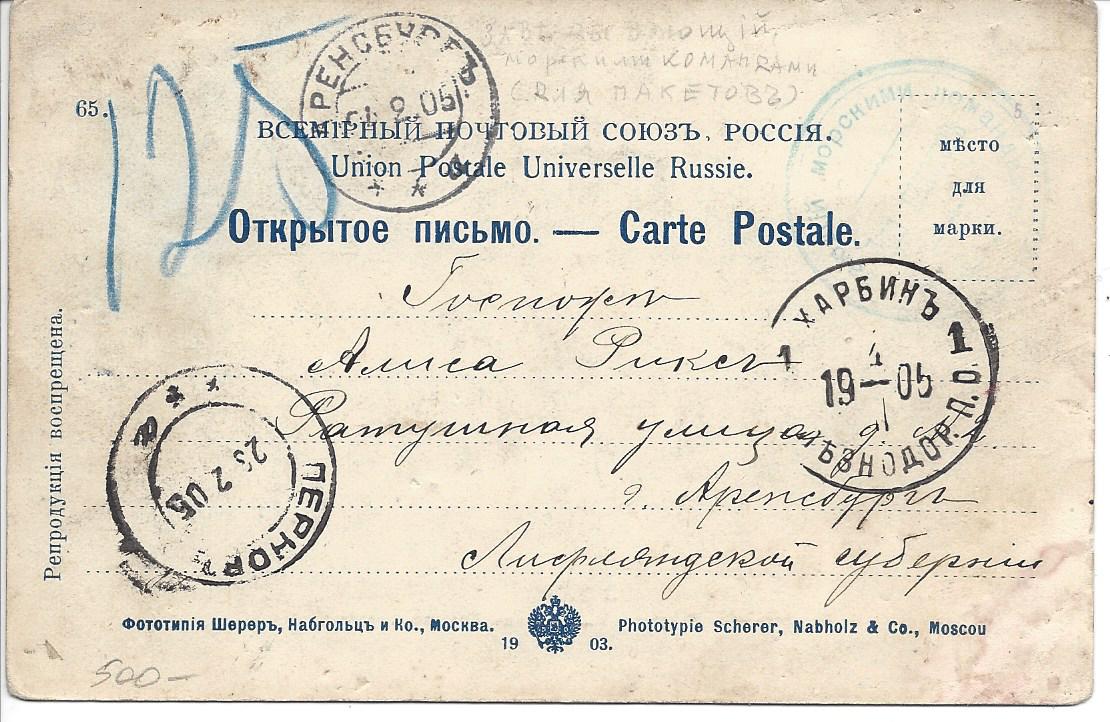 морскими командами
(для пакетовъ)
125
АРЕНСБУРГЪ
2 05
морскими команд
65.
ВСЕМІРНЫЙ ПОЧТОВЫЙ СОЮЗЪ, РОССІЯ.
Union Postale Universelle Russie.
мѣсто
для
марки.
Открытое письмо. — Carte Postale.
Госпожѣ
Алиса Риксъ
Ратушная улица д.
г. Аренсбургъ
Лифляндской губерніи
ХАРБИНЪ
1 1
19 — 05
ЛѢЗНОДОР. П. О.
ПЕРНОВЪ
23 2 05
Репродукція воспрещена.
Фототипія Шереръ, Набгольцъ и Ко., Москва.
19 03.
Phototypie Scherer, Nabholz & Co., Moscou
500–